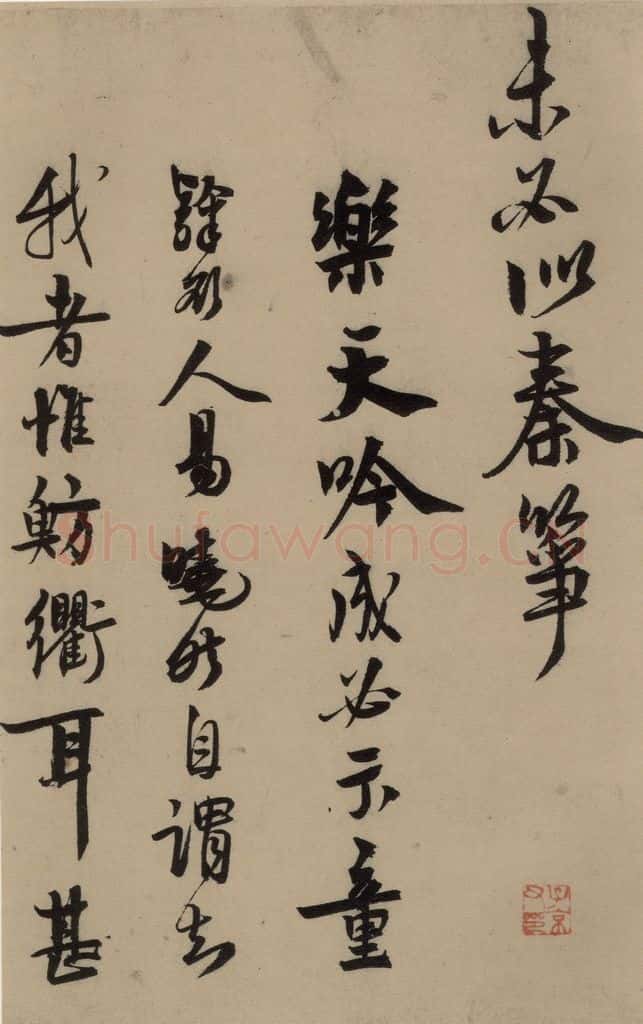 未必似秦箏
樂天吟成必示童
人易曉 自謂知
我者惟魴衢耳甚
Shufawang.cn